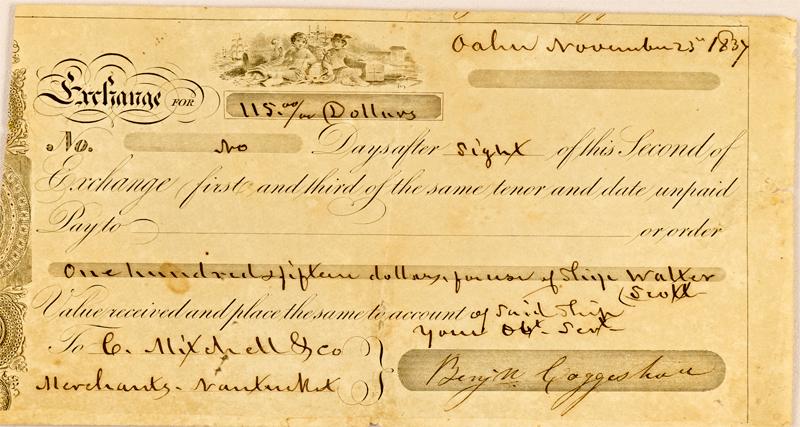 Oahu November 25th 1837
Exchange FOR
115.00/00 Dollars
No. No Days after sight of this Second of
Exchange (first and third of the same tenor and date unpaid
Pay to or order
One hundred & fifteen dollars, for use of Ship Walter
Scott
Value received and place the same to account of said Ship
Your Obt. Sert
To C. Mitchell & co
Merchants. Nantucket
Benjn. Coggeshall